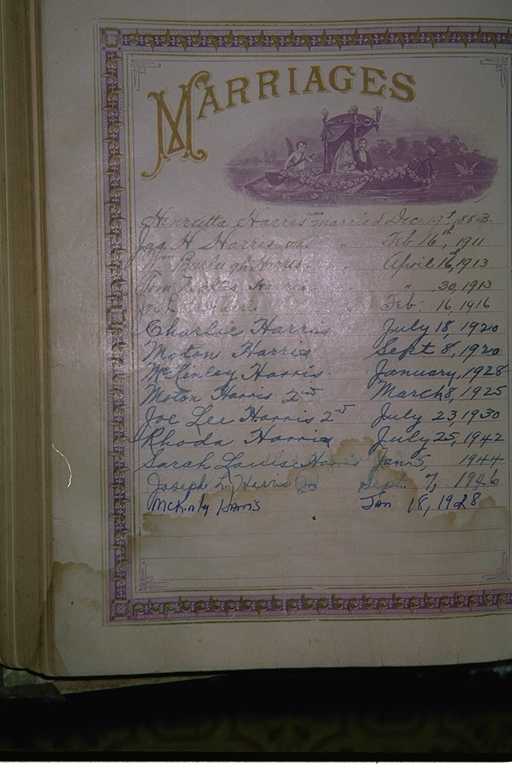 MARRIAGES
Henrietta Harris married Dec 19
H Harris Feb 16th, 1911
April 16, 1913
" 30, 1913
Feb. 16, 1916
Charlie Harris July 18, 1920
Moton Harris Sept 8, 1920
McKinley Harris January, 1928
Moton Harris 2nd March 8, 1925
Joe Lee Harris 2nd July 23, 1930
Rhoda Harris July 25, 1942
Sarah Louise Harris Jan 5, 1944
Joseph L. Harris Sept. 7, 1946
McKinly Harris Jan 18, 1928